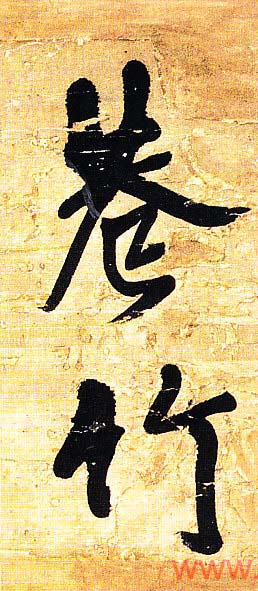 巷竹
www.